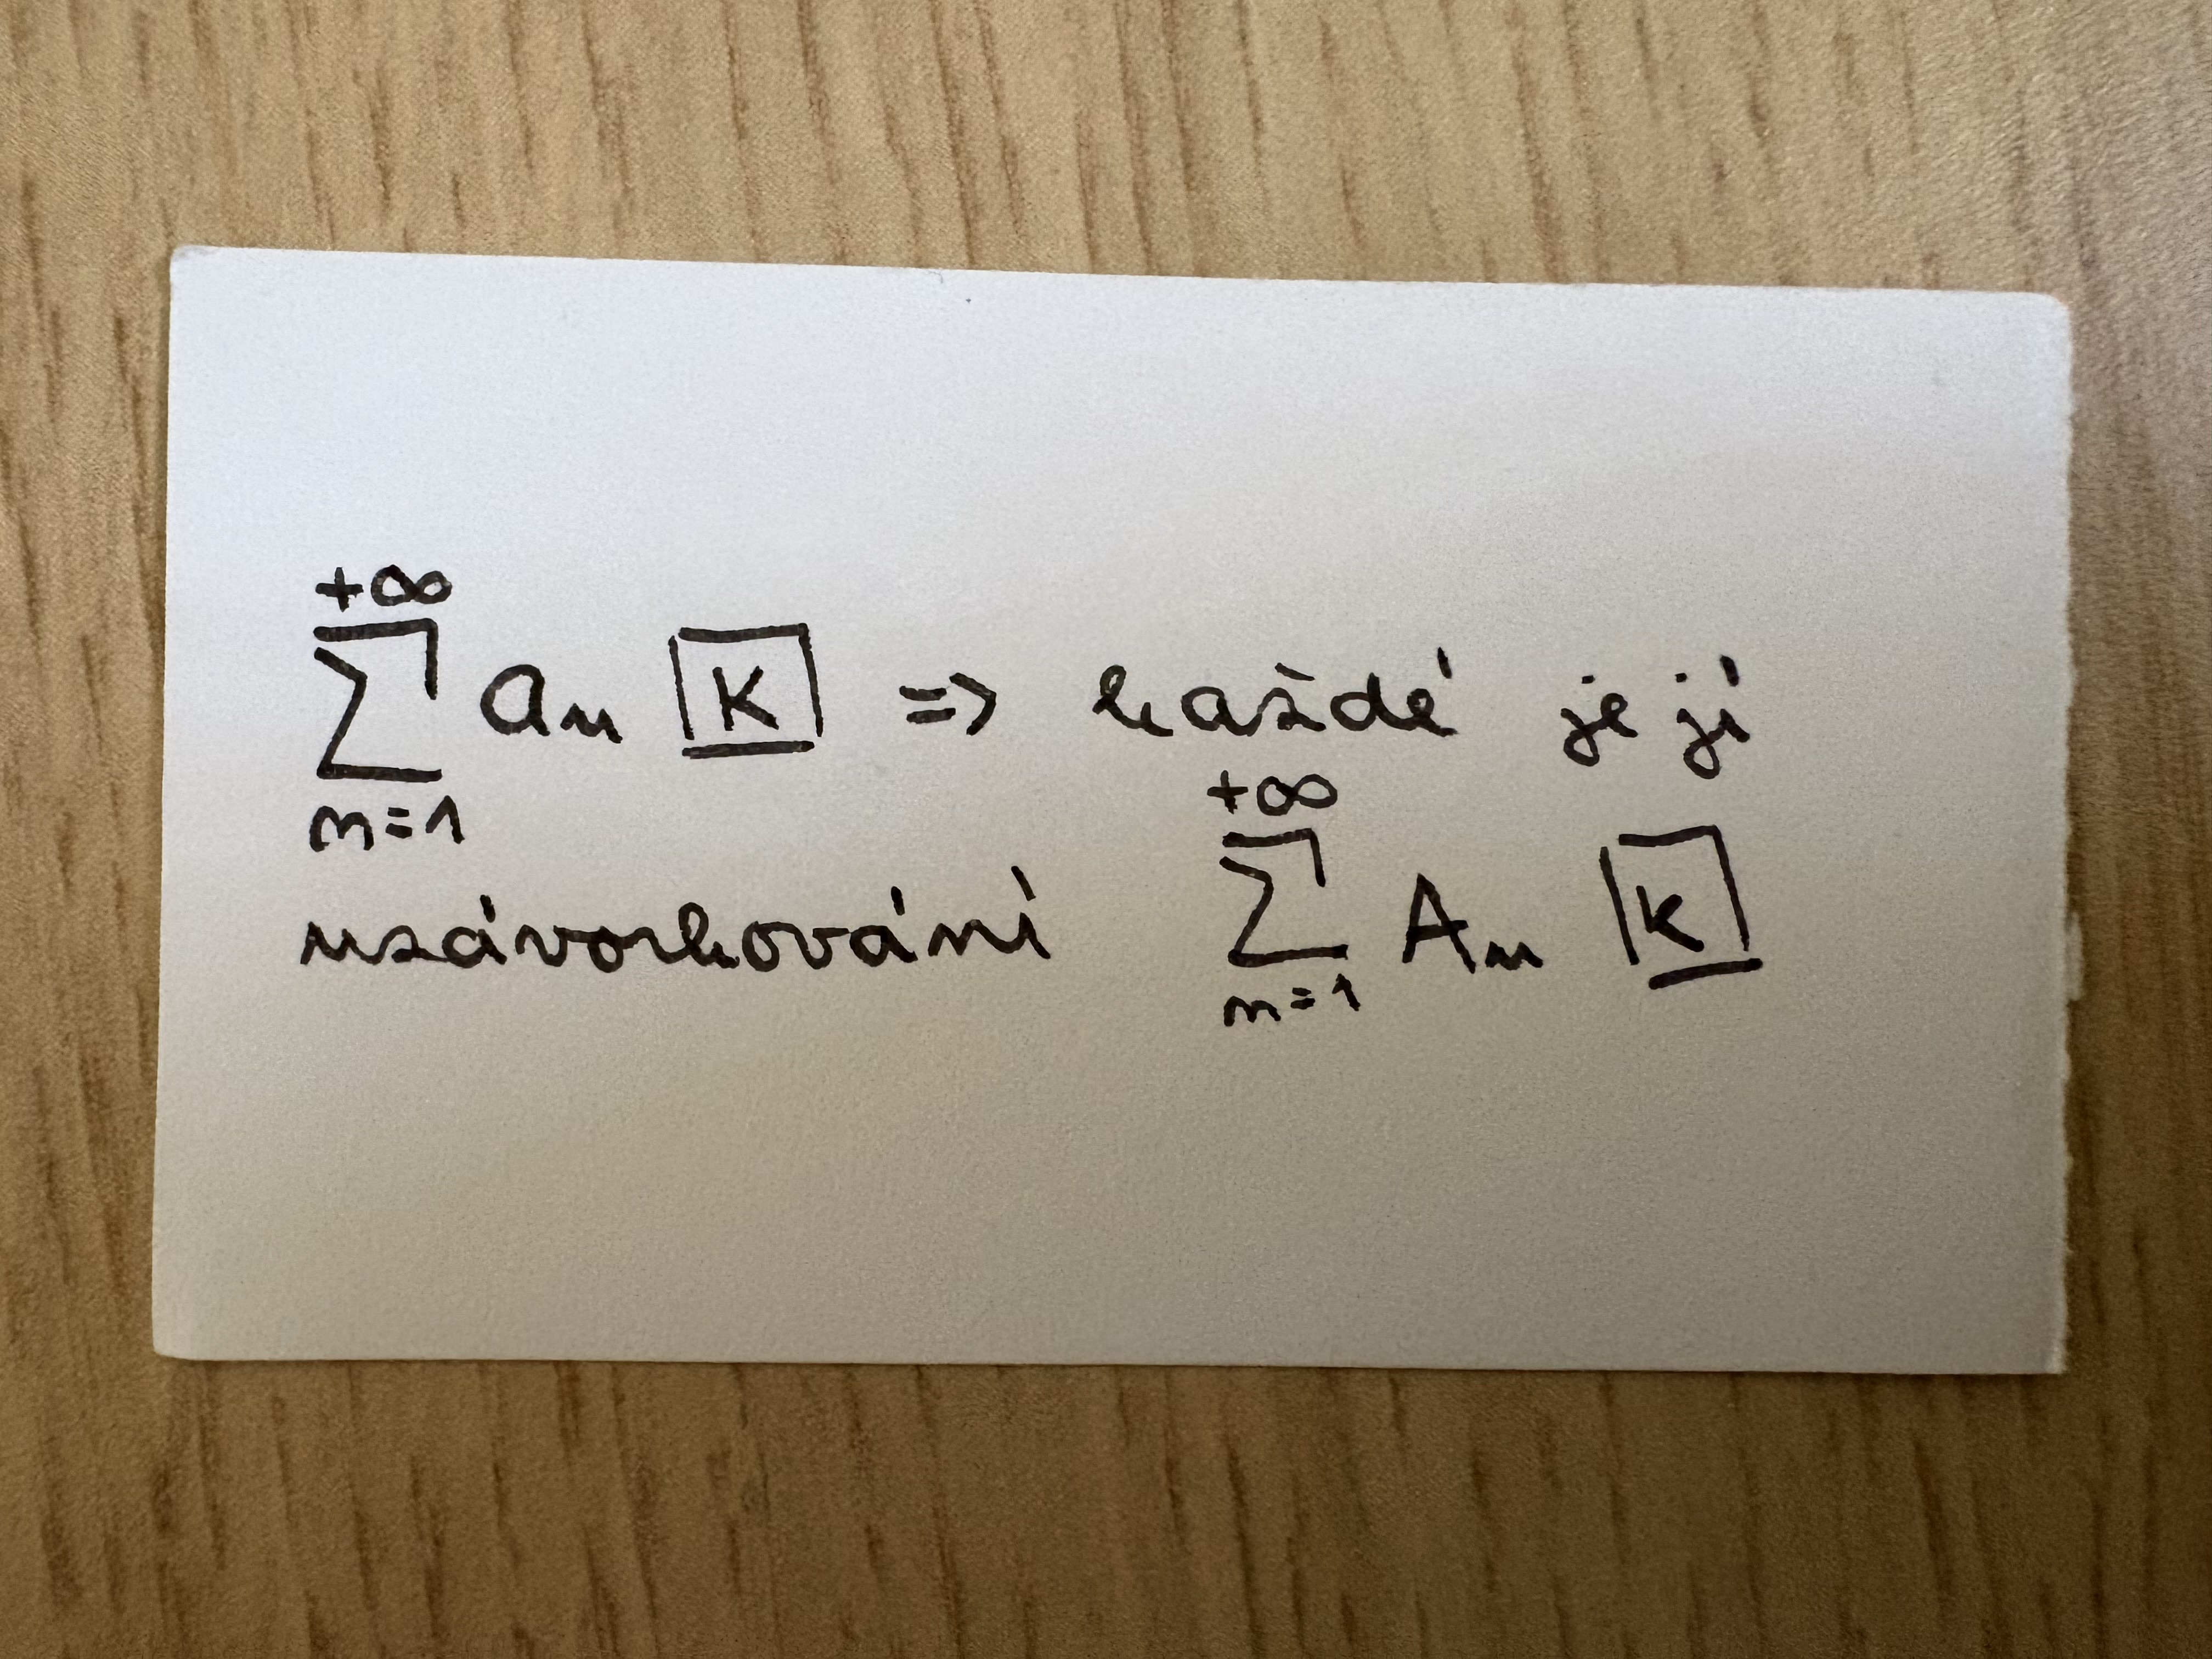 +∞
∑ aₙ K => každé její
n=1
uzávorkování +∞ ∑ n=1 Aₙ K